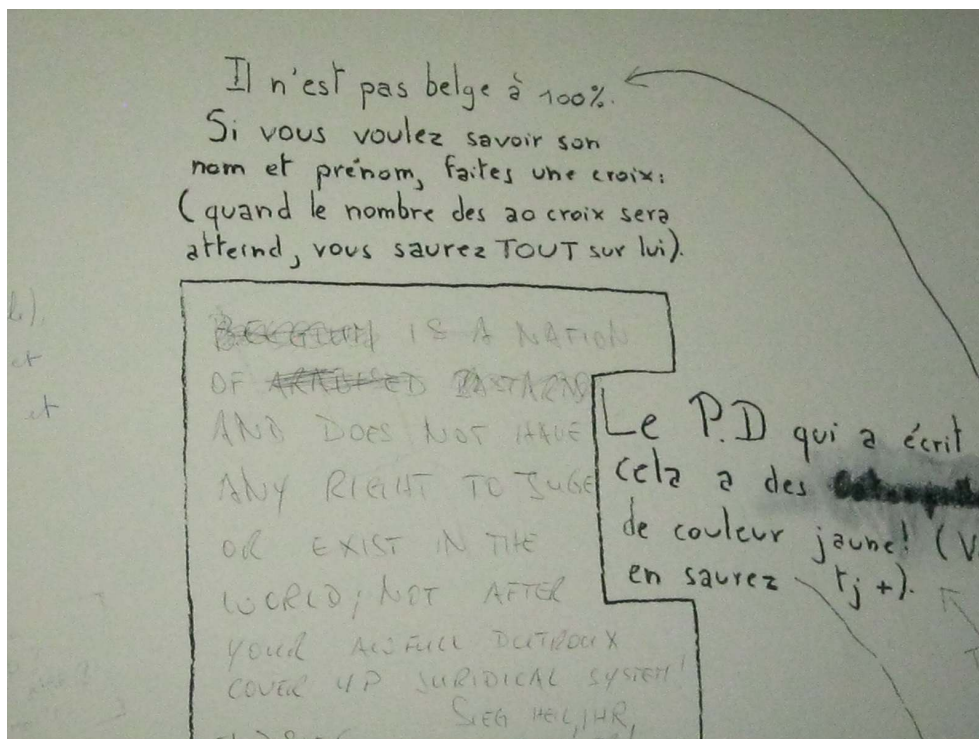 Il n'est pas belge à 100%.
Si vous voulez savoir son
nom et prénom, faites une croix:
(quand le nombre des 20 croix sera
atteind, vous saurez TOUT sur lui).
IS A NATION
OF BASTARDS
AND DOES NOT HAVE
ANY RIGHT TO JUGE
OR EXIST IN THE
WORLD; NOT AFTER
YOUR AWFULL DUTROUX
COVER UP JURIDICAL SYSTEM!
SIEG HEIL, IHR,
Le P.D qui a écrit
cela a des
de couleur jaune! (V
en saurez tj +).
et
et